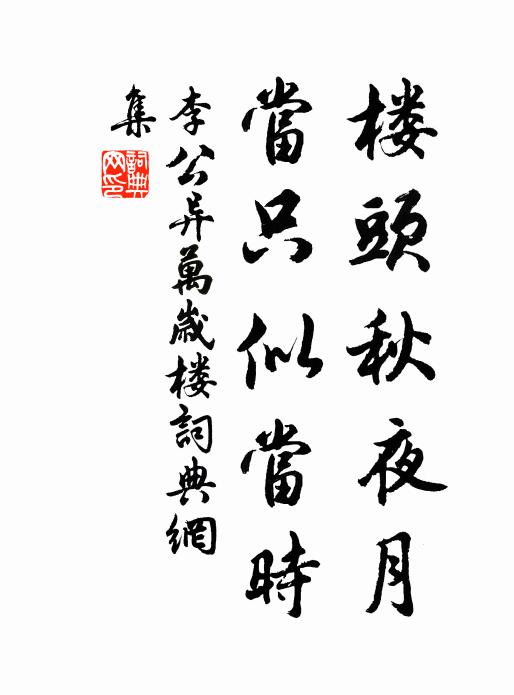 楼頭秋夜月
當只似當時
李公异萬歲楼詞典網
集
詞典网印